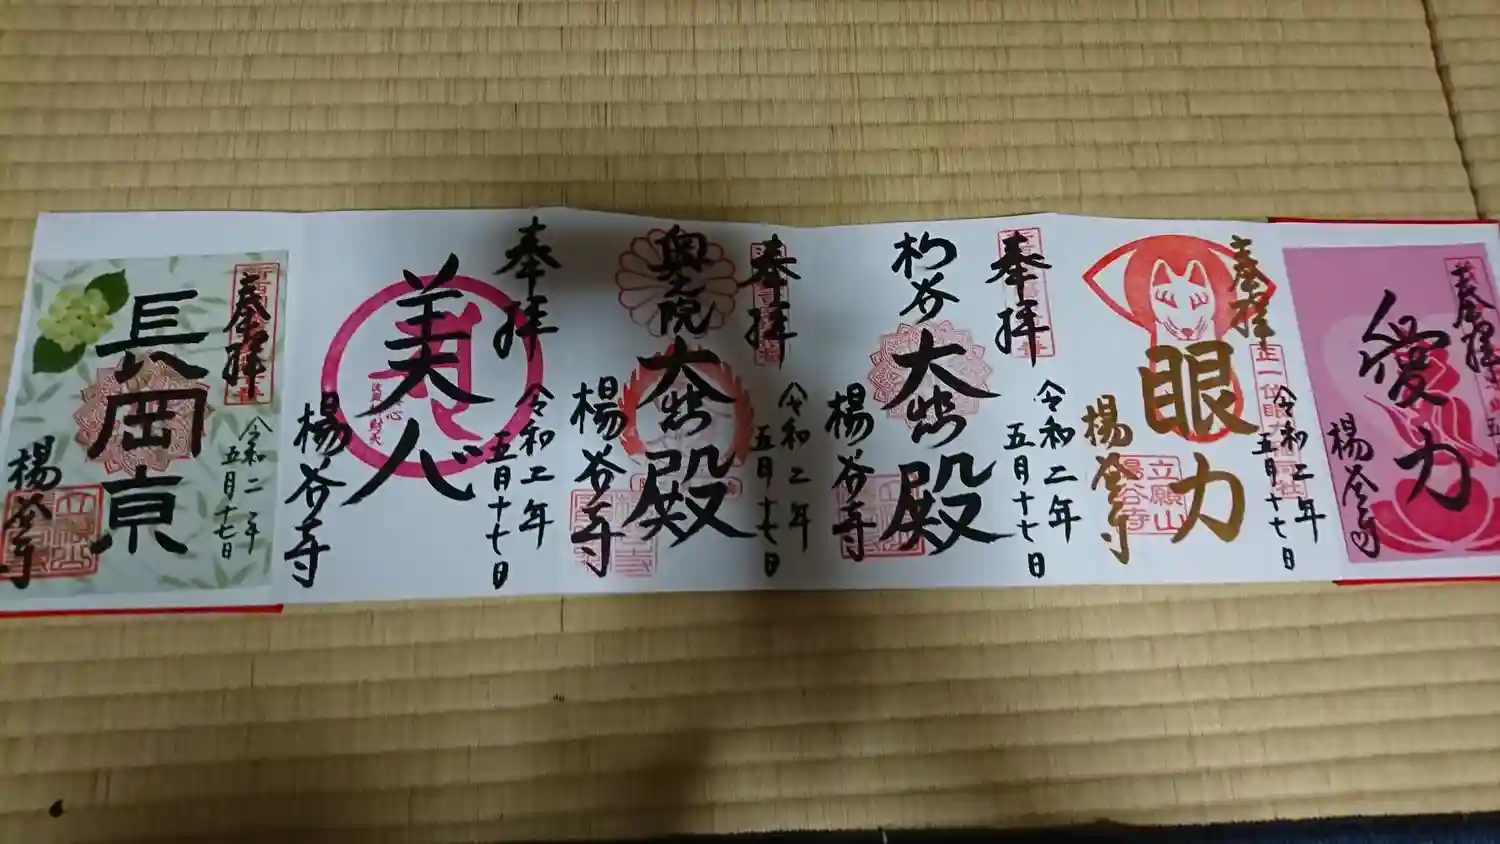 奉拝
愛力
楊谷寺
奉拝
眼力
令和二年
五月十七日
楊谷寺
立願山
楊谷寺
奉拝
杓谷
大悲殿
令和二年
五月十七日
楊谷寺
奉拝
奥之院
大悲殿
令和二年
五月十七日
楊谷寺
奉拝
美人
令和二年
五月十七日
楊谷寺
奉拝
長岡京
令和二年
五月十七日
楊谷寺